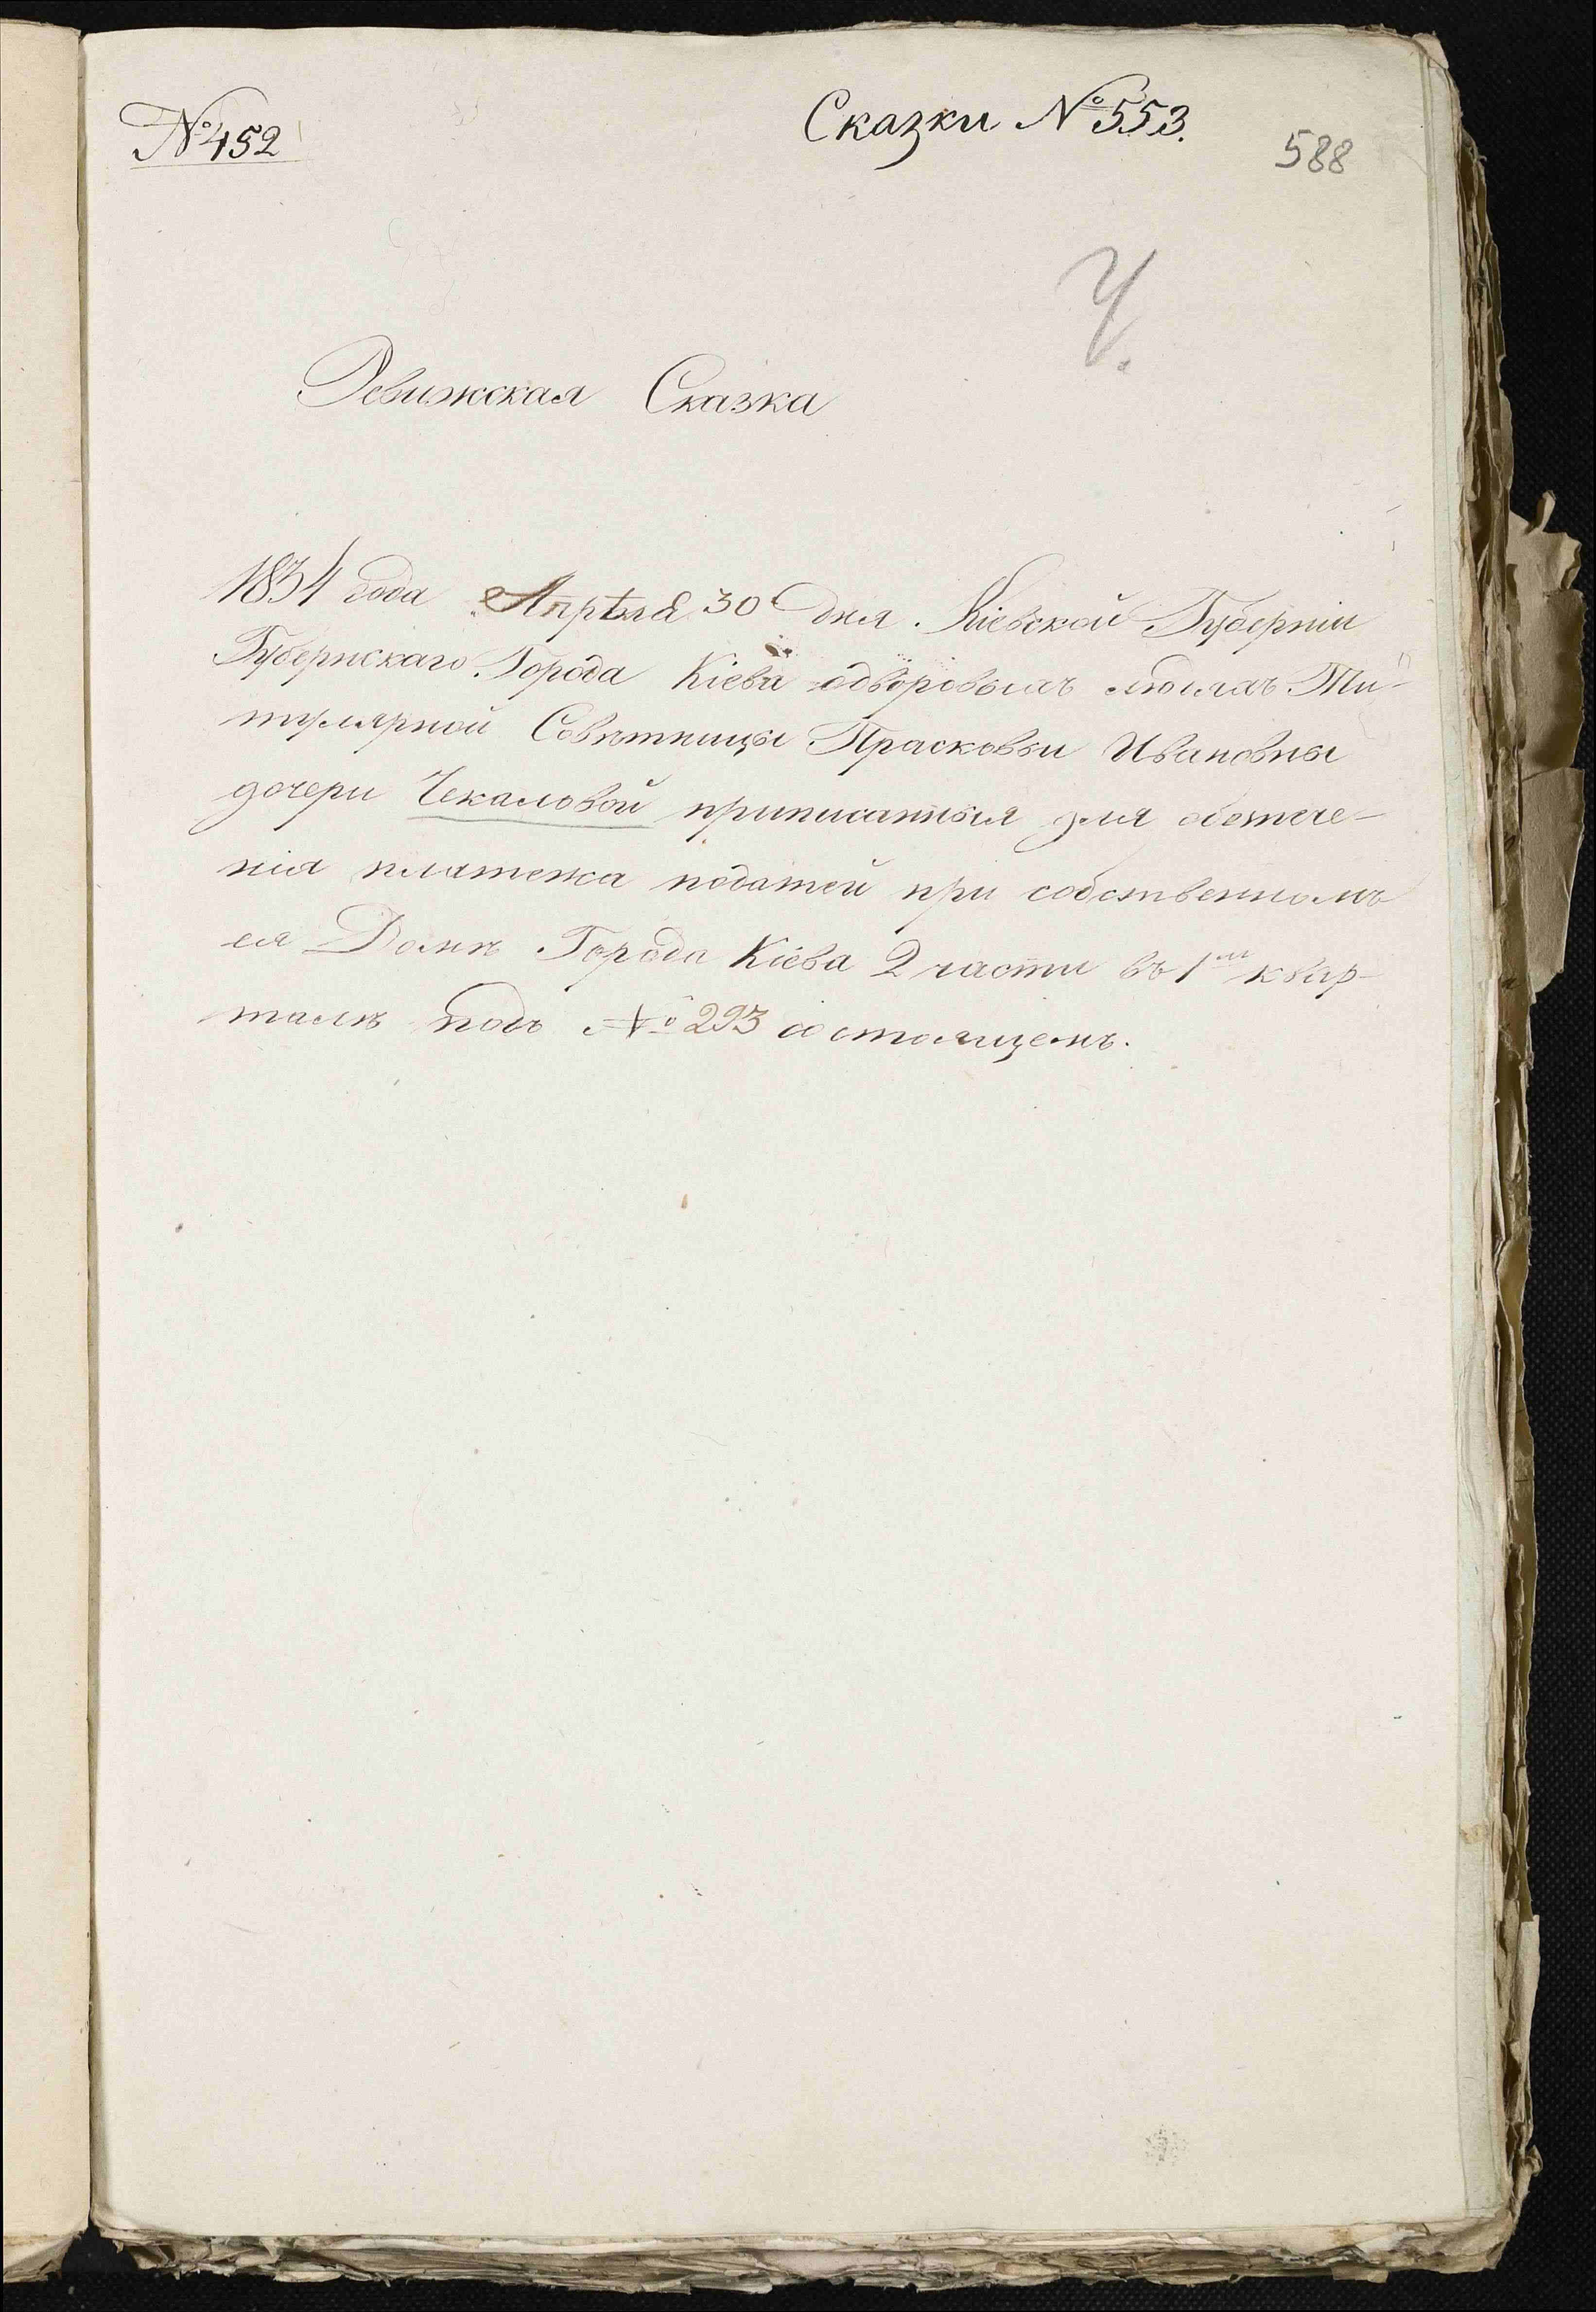 № 452
Сказки № 553.
588
Ч.
Ревижская Сказка
1834 года Апрѣля 30 дня. Кіевской Губерніи
Губернскаго Города Кіева одворовыхъ людяхъ Ти-
тулярной Совѣтницы Прасковьи Ивановны
дочери Чекаловой приписанныя для обезпече-
нія платежа податей при собственномъ
ея Домѣ Города Кіева 2 части въ 1м квар-
талѣ подъ № 293 состоящемъ.